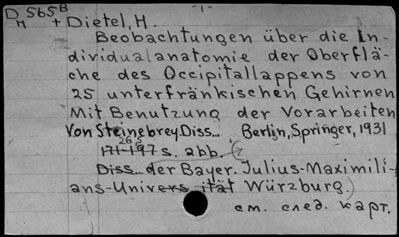 D 565 B -1-
M + Dietel, H.
Beobachtungen über die In-
dividualanatomie der Oberflä-
che des Occipitallappens von
25 unterfränkischen Gehirnen
Mit Benutzung der Vorarbeiten
Von Steinebrey Diss... Berlin, Springer, 1931
171-197 s. abb. (
Diss... der Bayer. Julius-Maximili-
ans-Universität Würzburg.)
см. след. карт.